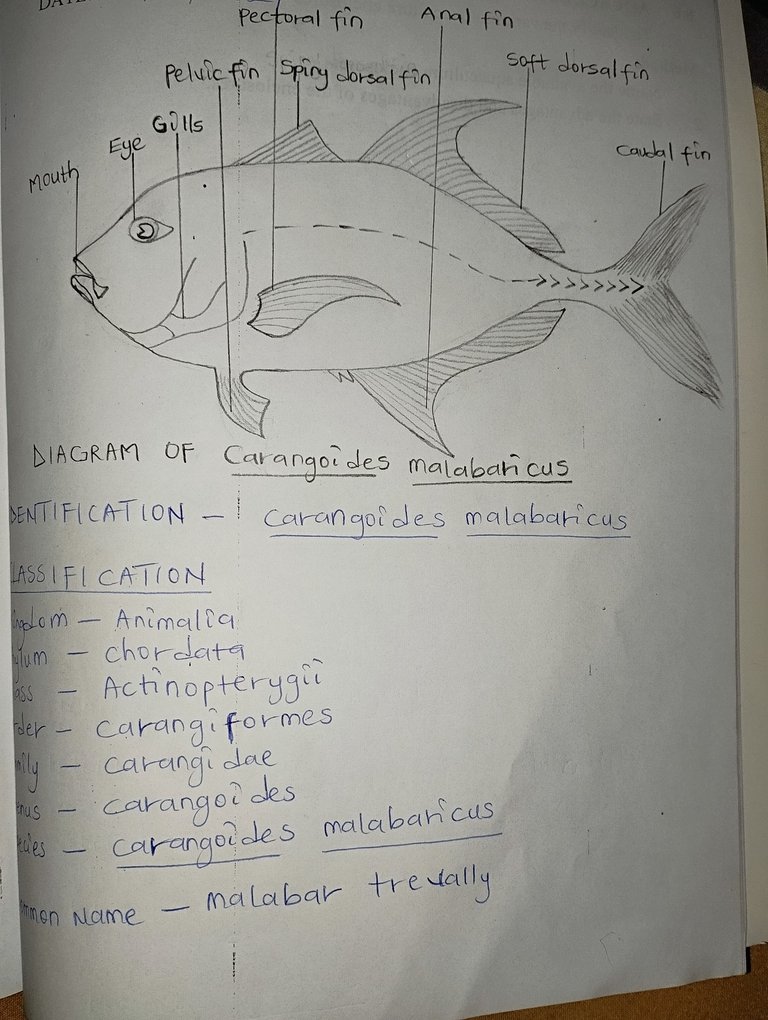 Pectoral fin
Anal fin
Pelvic fin
Spiny dorsal fin
Soft dorsal fin
Gills
Eye
Mouth
Caudal fin
DIAGRAM OF Carangoides malabaricus
DENTIFICATION - Carangoides malabaricus
LASSIFICATION
ngdom - Animalia
ylum - chordata
ass - Actinopterygii
rder - carangiformes
mily - carangidae
enus - carangoides
ecies - carangoides malabaricus
mmon Name - malabar trevally